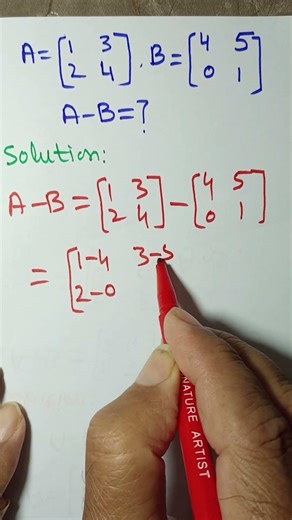 A = [1 3 2 4] . B = [4 5 0 1]
A-B=?
Solution:
A-B = [1 3 2 4] - [4 5 0 1]
= [1-4 3-5 2-0
NATURE ARTIST